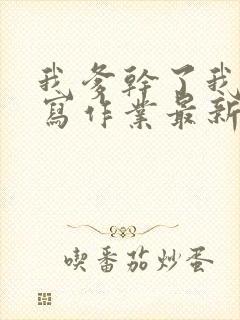 我爹幹了我
寫作業最新
喫番茄炒蛋